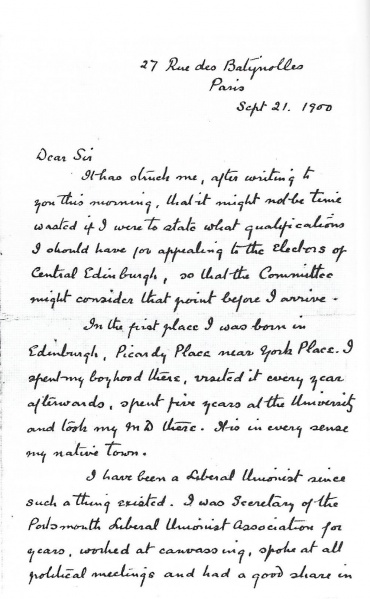 27 Rue des Batignolles
Paris
Sept 21. 1900
Dear Sir
It has struck me, after writing to
you this morning, that it might not be time
wasted if I were to state what qualifications
I should have for appealing to the Electors of
Central Edinburgh, so that the Committee
might consider that point before I arrive.
In the first place I was born in
Edinburgh, Picardy Place near York Place. I
spent my boyhood there, visited it every year
afterwards, spent five years at the University
and took my MD there. It is in every sense
my native town.
I have been a Liberal Unionist since
such a thing existed. I was Secretary of the
Portsmouth Liberal Unionist Association for
years, worked at canvassing, spoke at all
political meetings and had a good share in